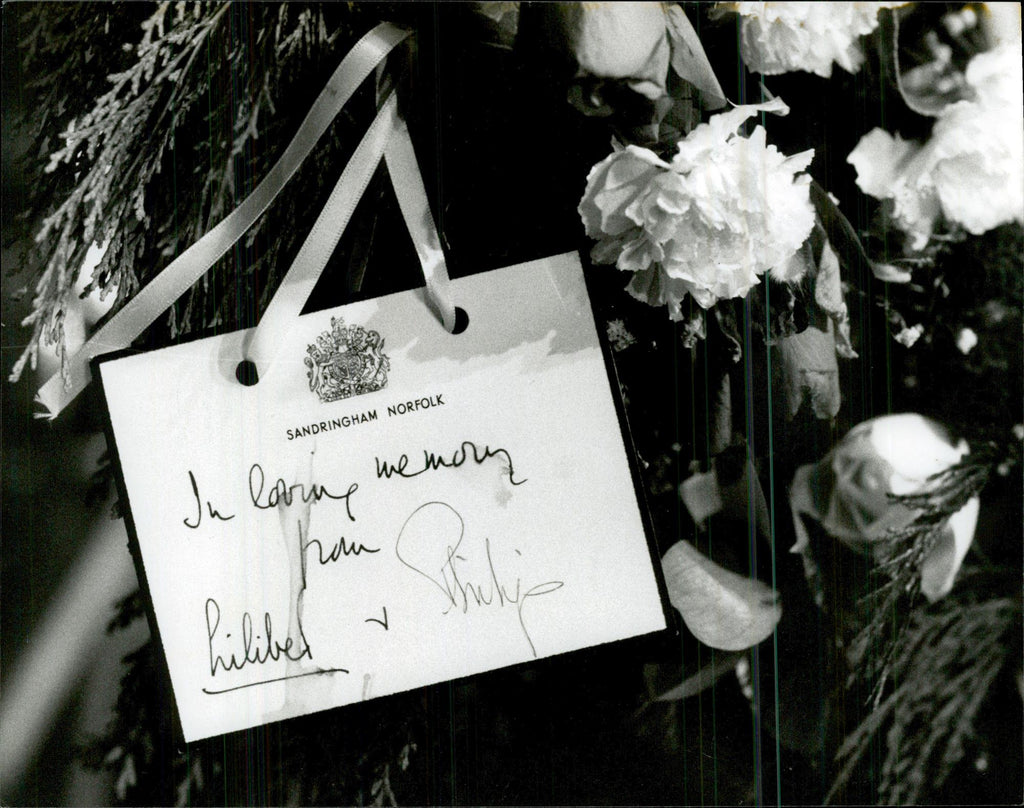 SANDRINGHAM NORFOLK
In loving memory
from
Lilibet + Philip